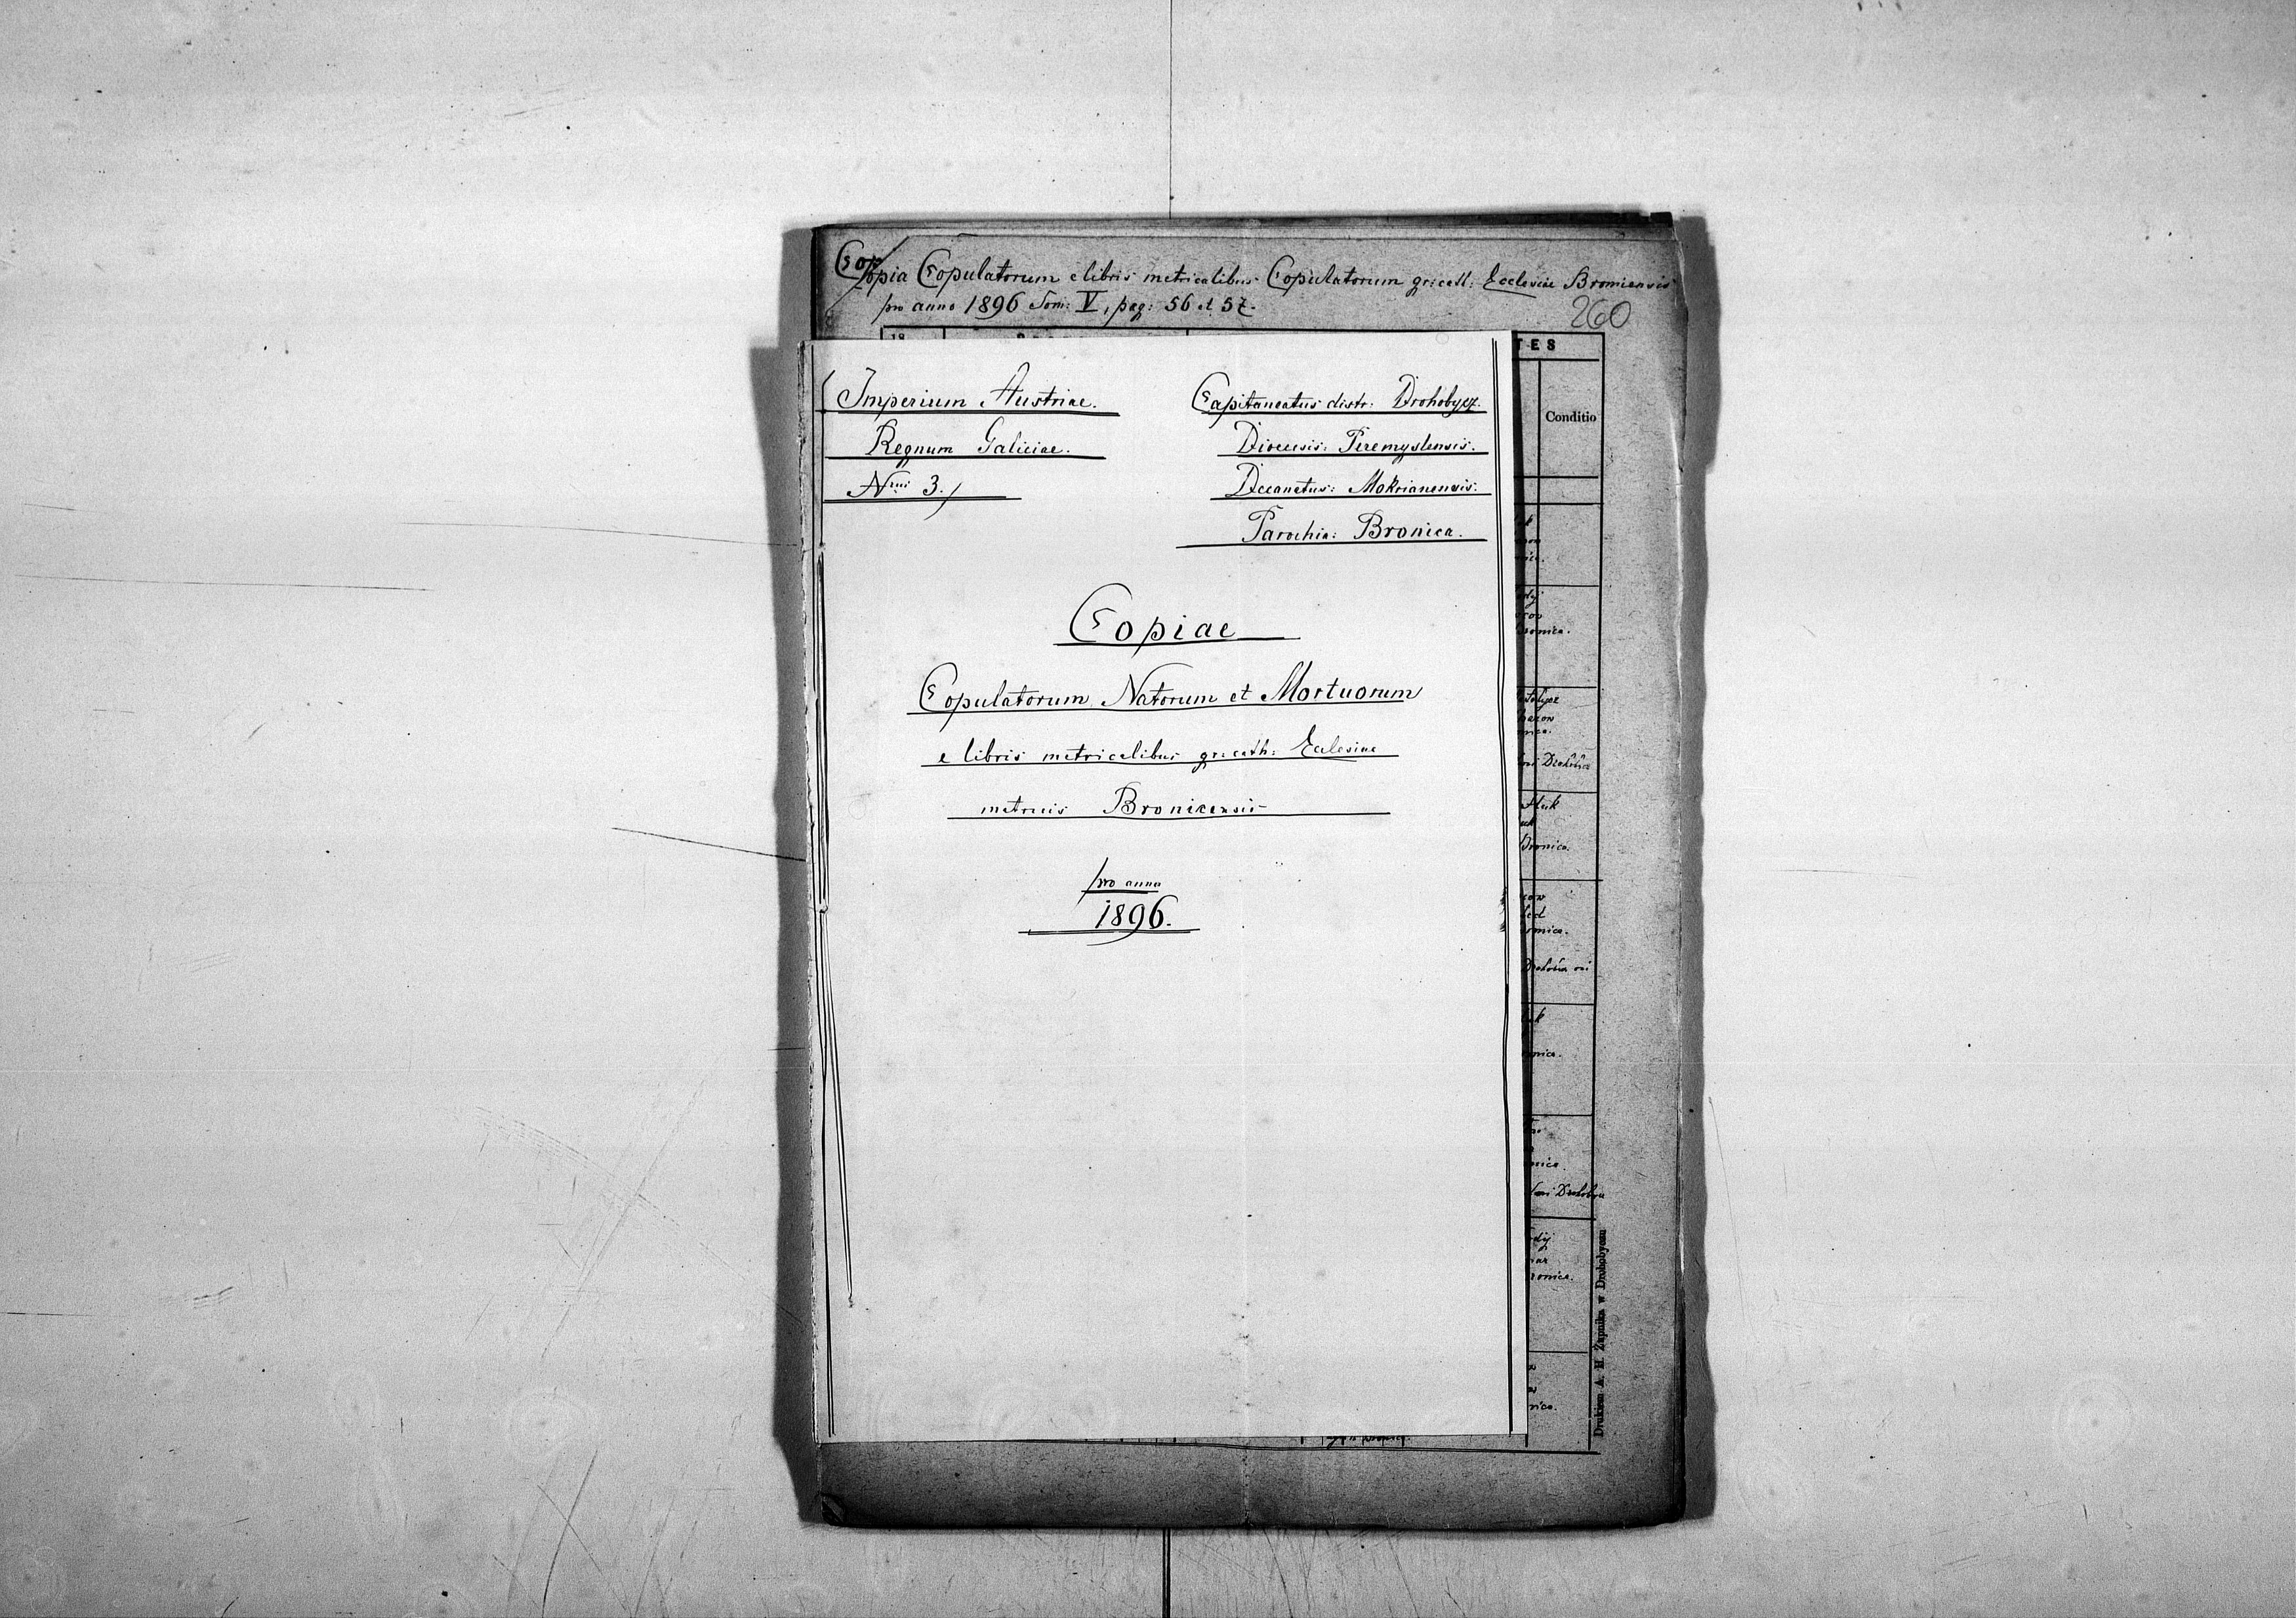 Copia Copulatorum e libris metricalibus Copulatorum gr: cath: Ecclesiae
pro anno 1896 Tom: V, pag: 56 et 57.
260
TES
Conditio
Imperium Austriae.
Regnum Galiciae.
Nrui 3.
Capitaneatus distr: Drohobycz.
Dioecesis: Peremyslensis.
Decanatus: Mokrianensis.
Parochia: Bronica.
Copiae
Copulatorum, Natorum et Mortuorum
e libris metricalibus gr: cath: Ecclesiae
matricis Bronicensis
pro anno
1896.
Bronica.
Bronica.
Drukiem A. H. Żupnika w Drohobyczu